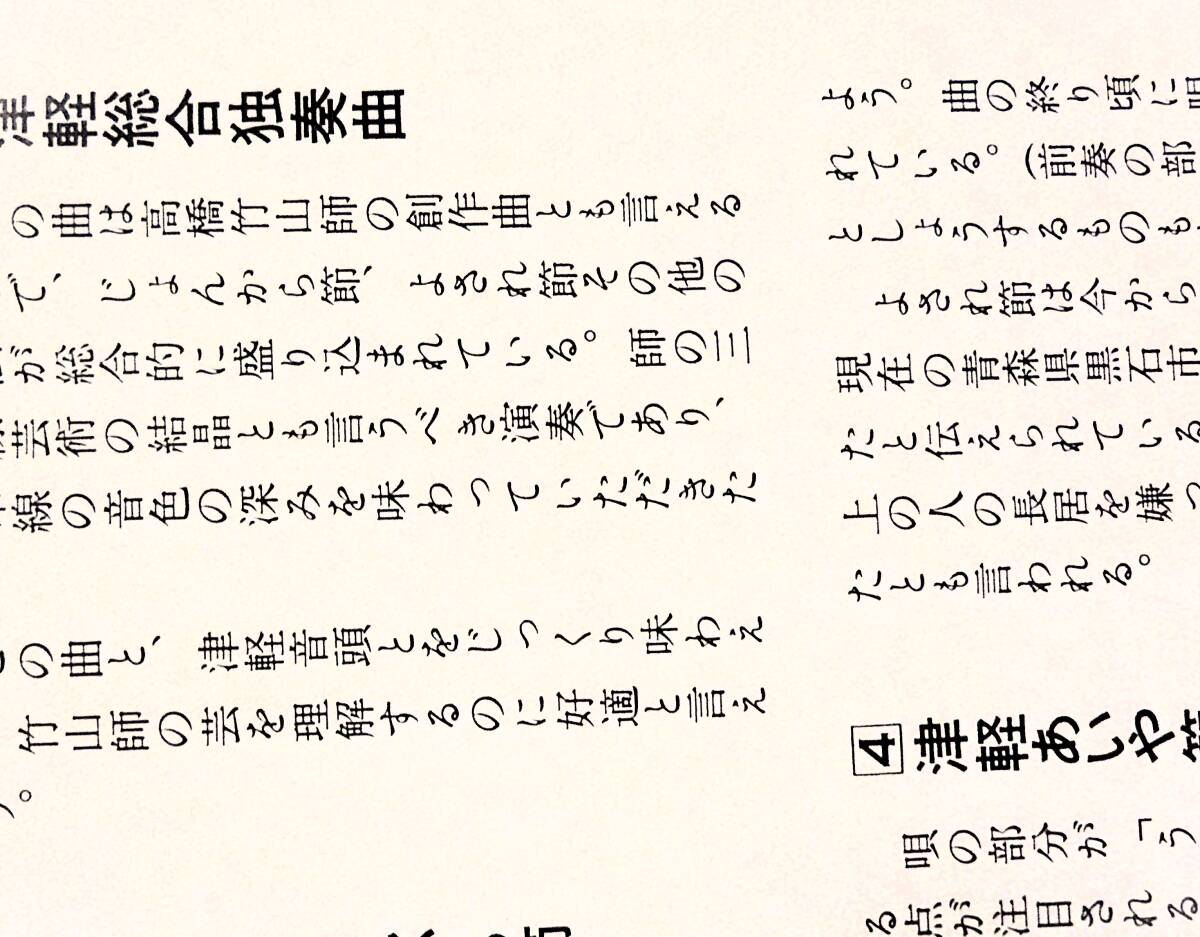 津軽総合独奏曲
の曲は高橋竹山師の創作曲とも言える
で、じょんから節、よされ節その他の
が総合的に盛り込まれている。師の三
芸術の結晶とも言うべき演奏であり、
線の音色の深みを味わっていただきた
の曲と、津軽音頭とをじっくり味わえ
竹山師の芸を理解するのに好適と言え
。
よう。曲の終り頃に唄
れている。(前奏の部
としようするものも、
よされ節は今から
現在の青森県黒石市
たと伝えられている
上の人の長居を嫌っ
たとも言われる。
4 津軽あいや節
唄の部分が「う
る点が注目される